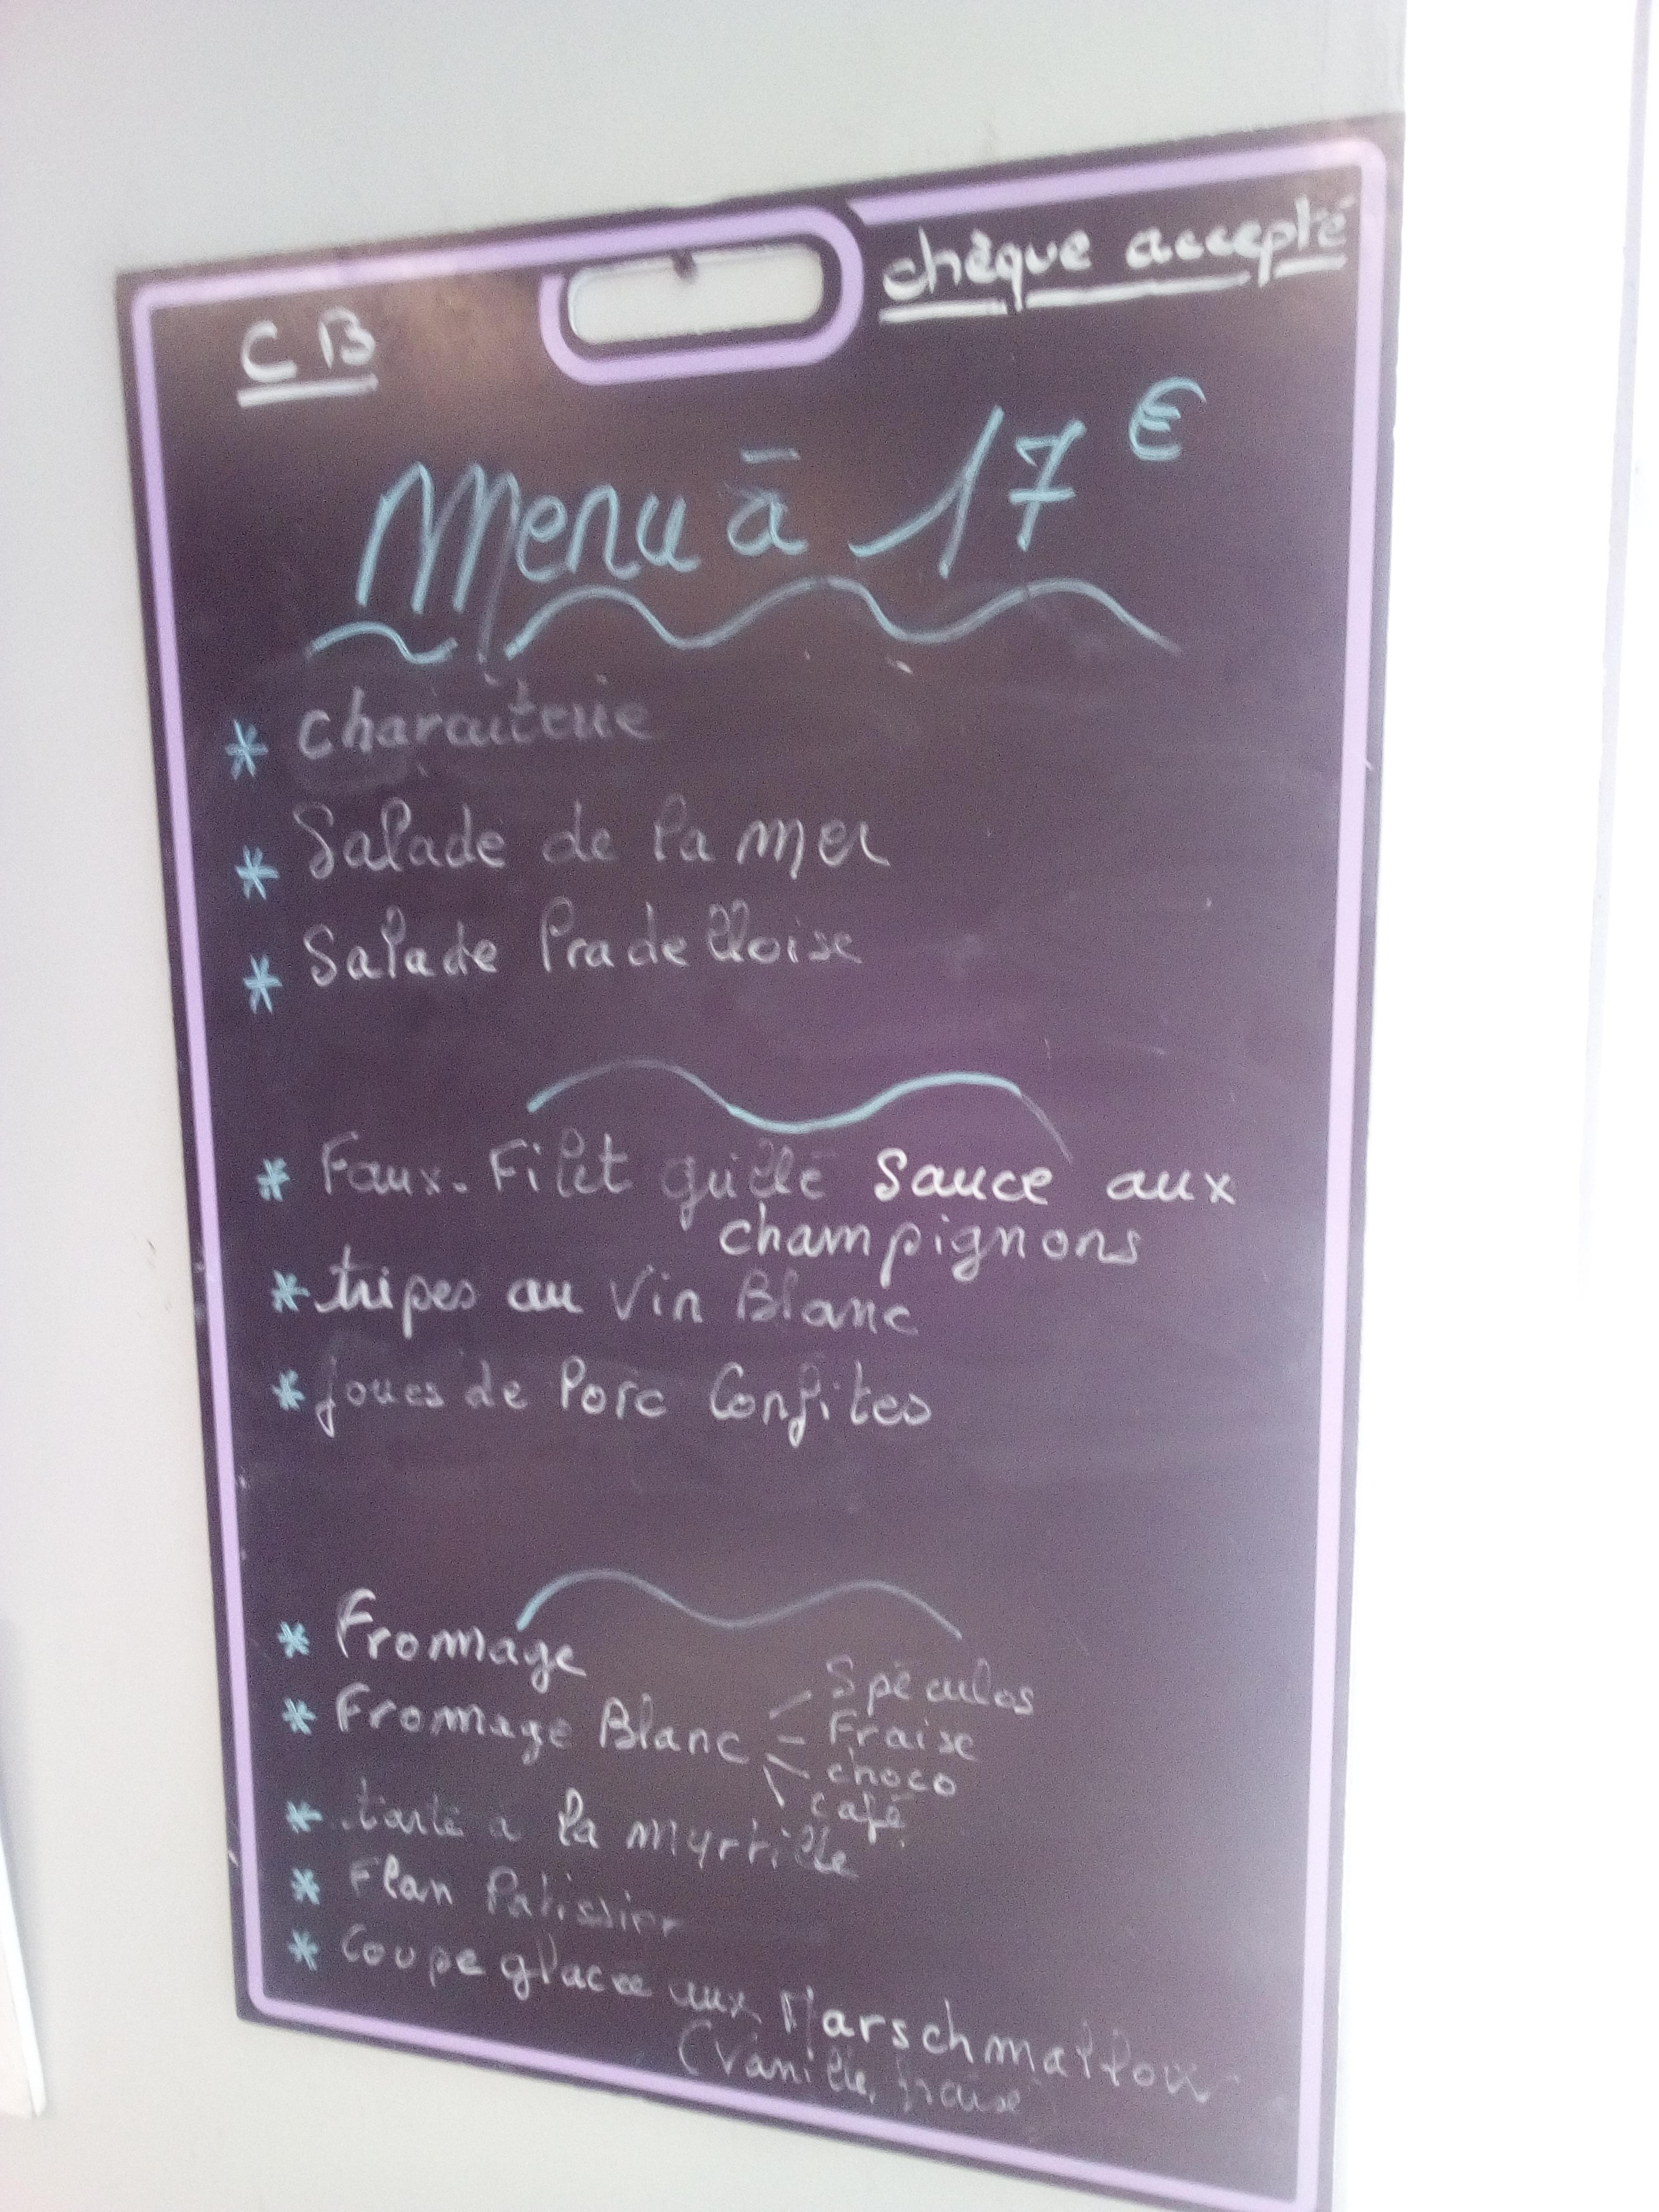 CB
chèque accepté
Menu à 17€
* Charcuterie
* Salade de la mer
* Salade Pradelloise
* Faux-Filet grillé Sauce aux
champignons
* tripes au Vin Blanc
* joues de Porc Confites
* Fromage
* Fromage Blanc - Spéculos
- Fraise
- choco
- café
* tarte à la myrtille
* Flan Patissier
* Coupe glacée aux Marschmallow
(Vanille, fraise